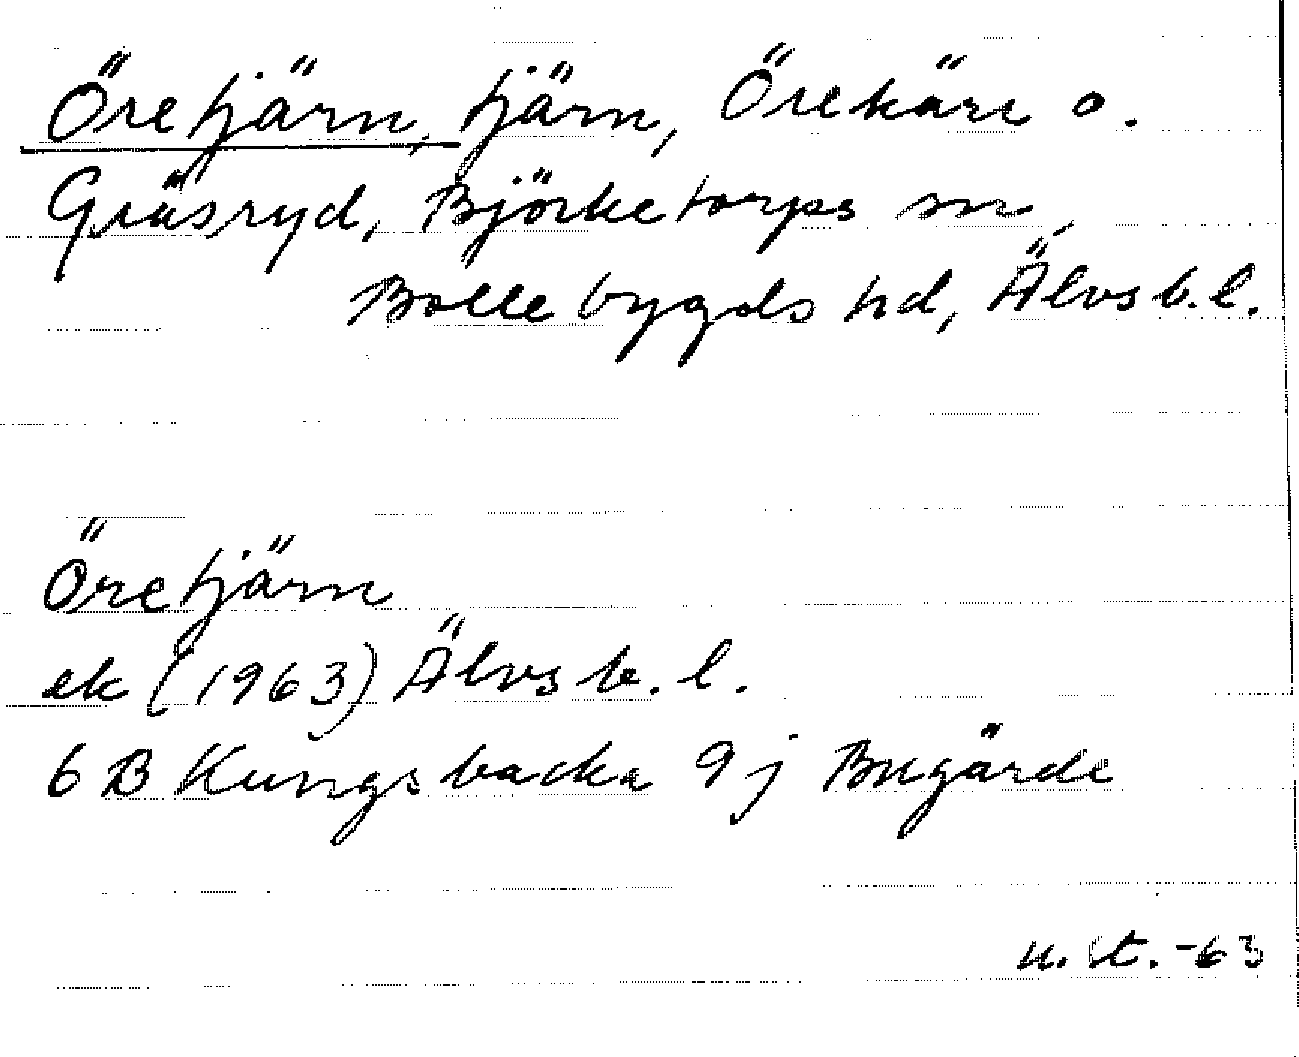 Öretjärn, tjärn, Örekärr o.
Gräsryd, Björketorps sn,
Bollebygds hd, Älvsb. l.
Öretjärn
ek (1963) Älvsb. l.
6 B Kungsbacka 9 j Bugärde
u. st. -63